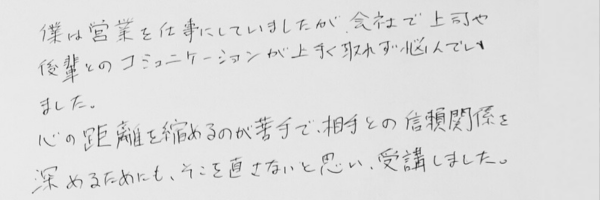 僕は営業を仕事にしていましたが、会社で上司や
後輩とのコミュニケーションが上手く取れず悩んでい
ました。
心の距離を縮めるのが苦手で、相手との信頼関係を
深めるためにも、そこを直さないと思い、受講しました。